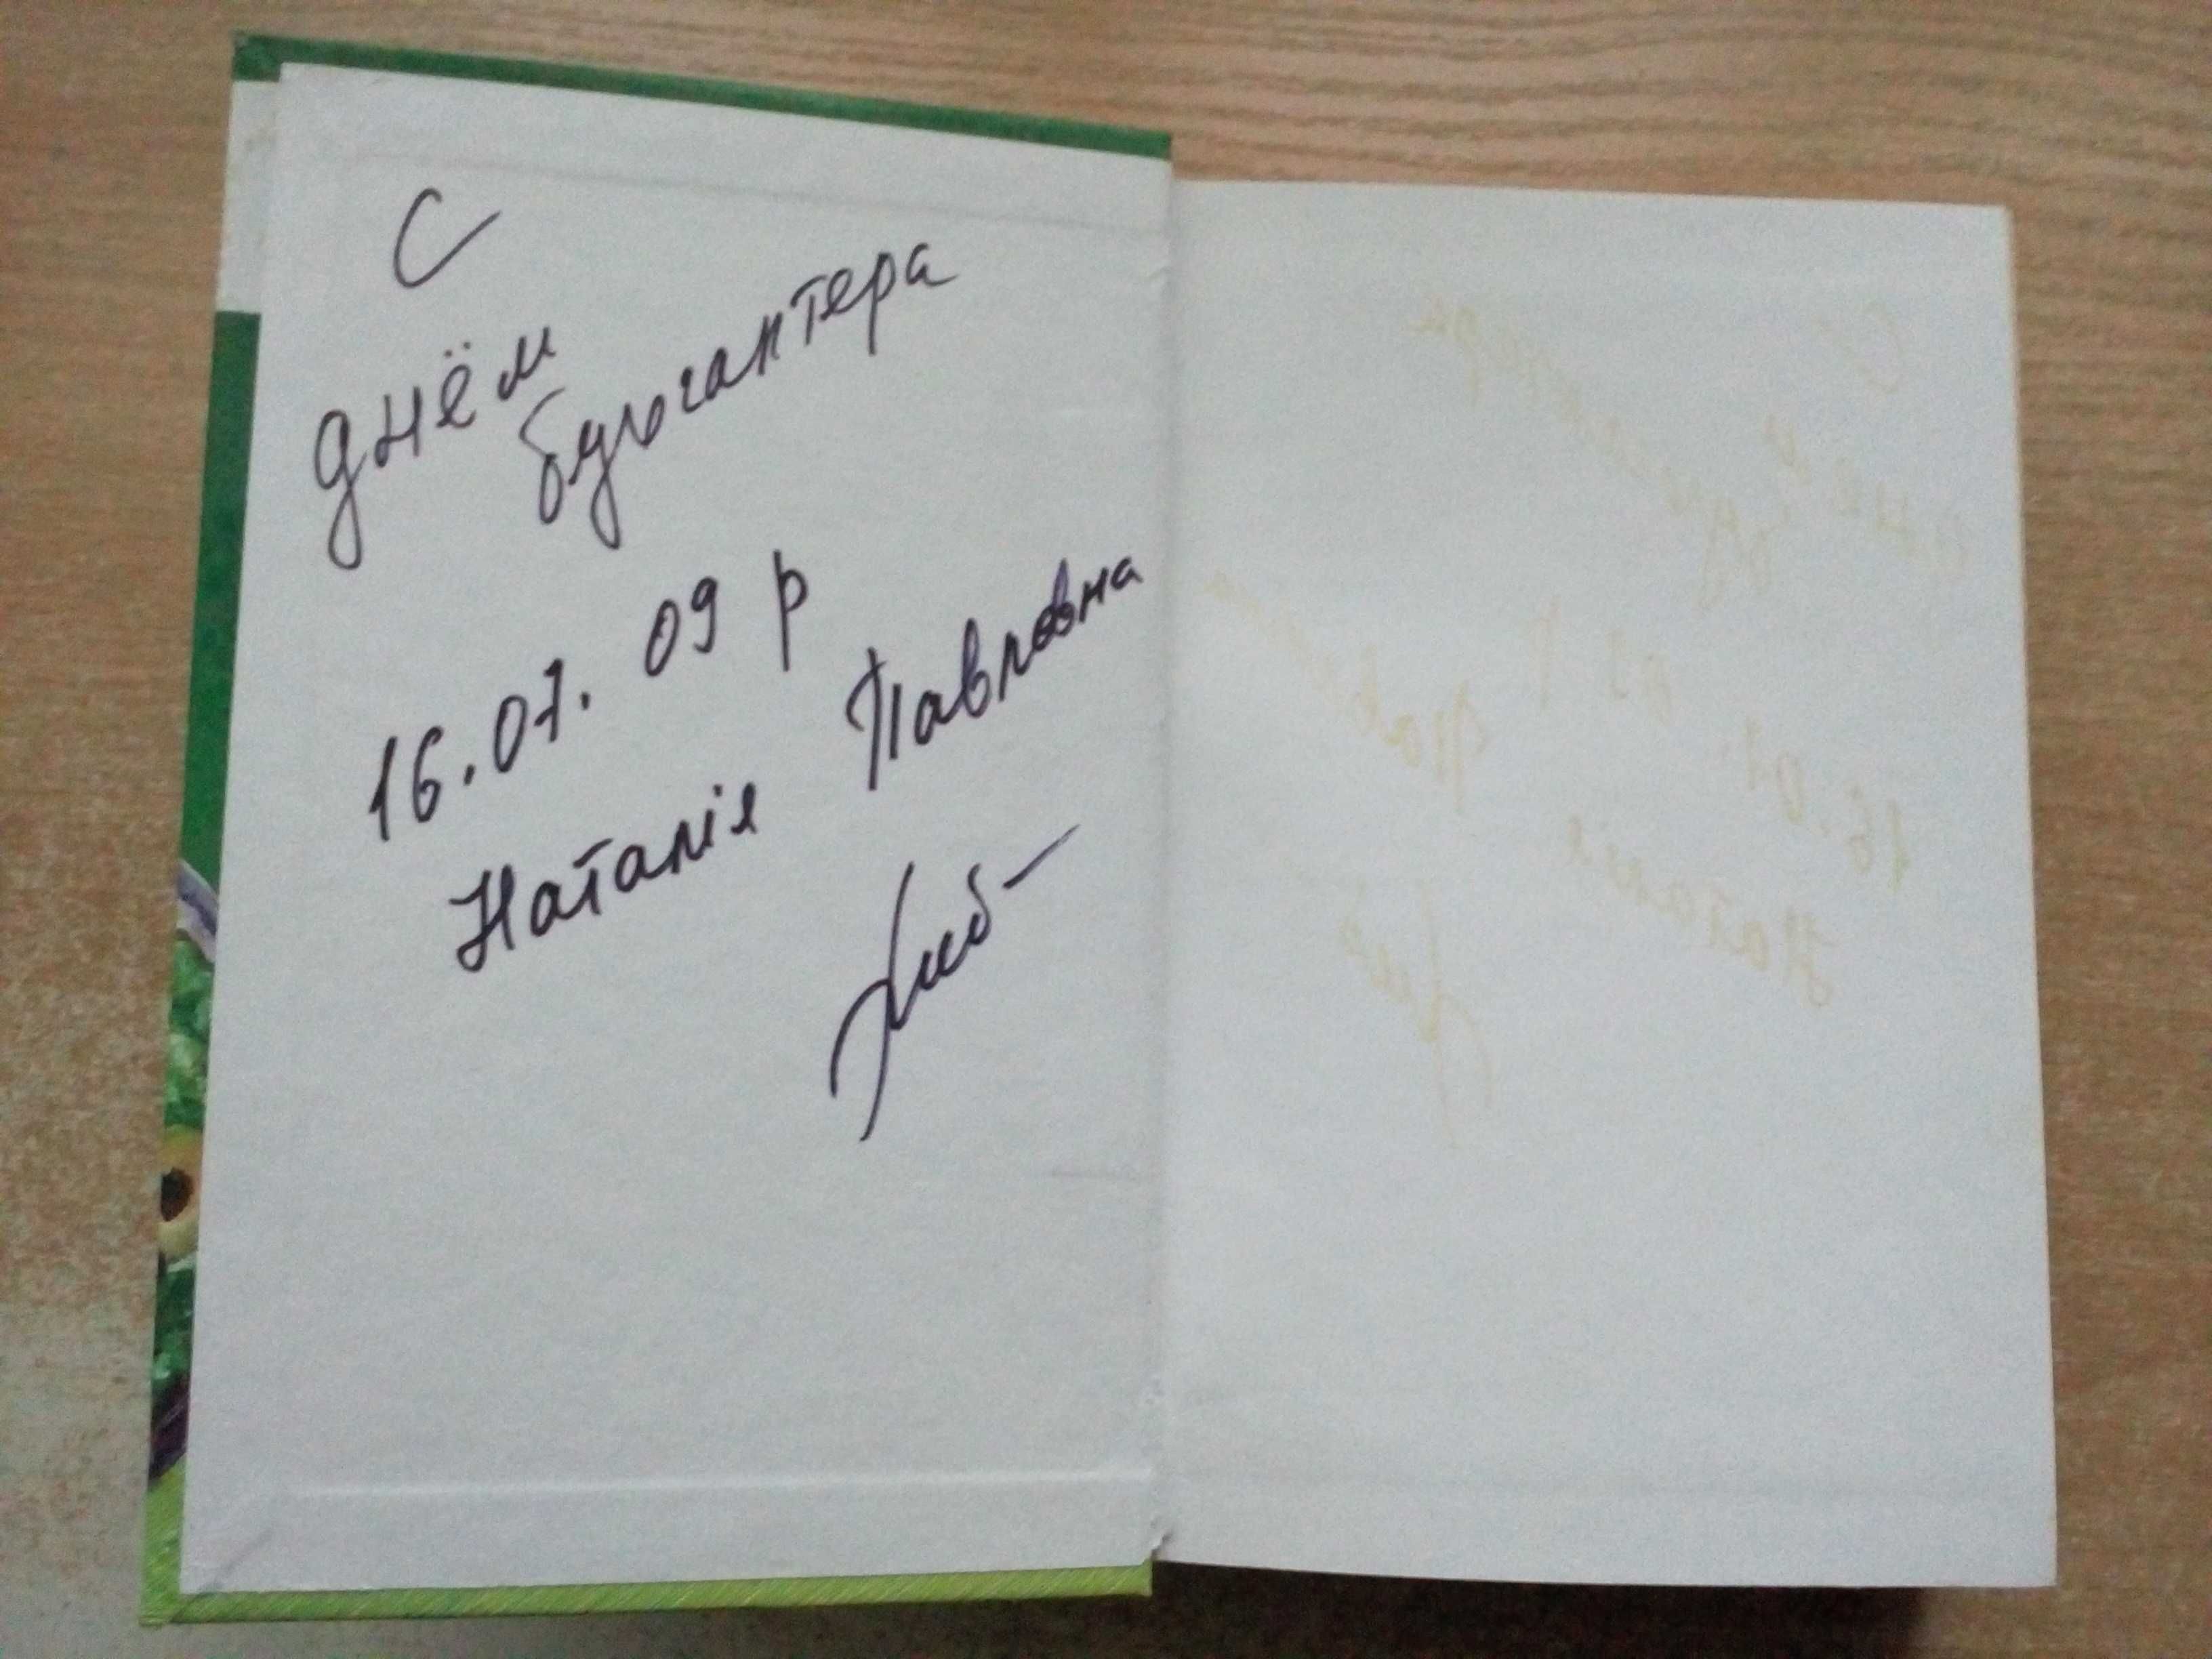 С
днём
бухгалтера
16.07.09 р
Наталія Павловна